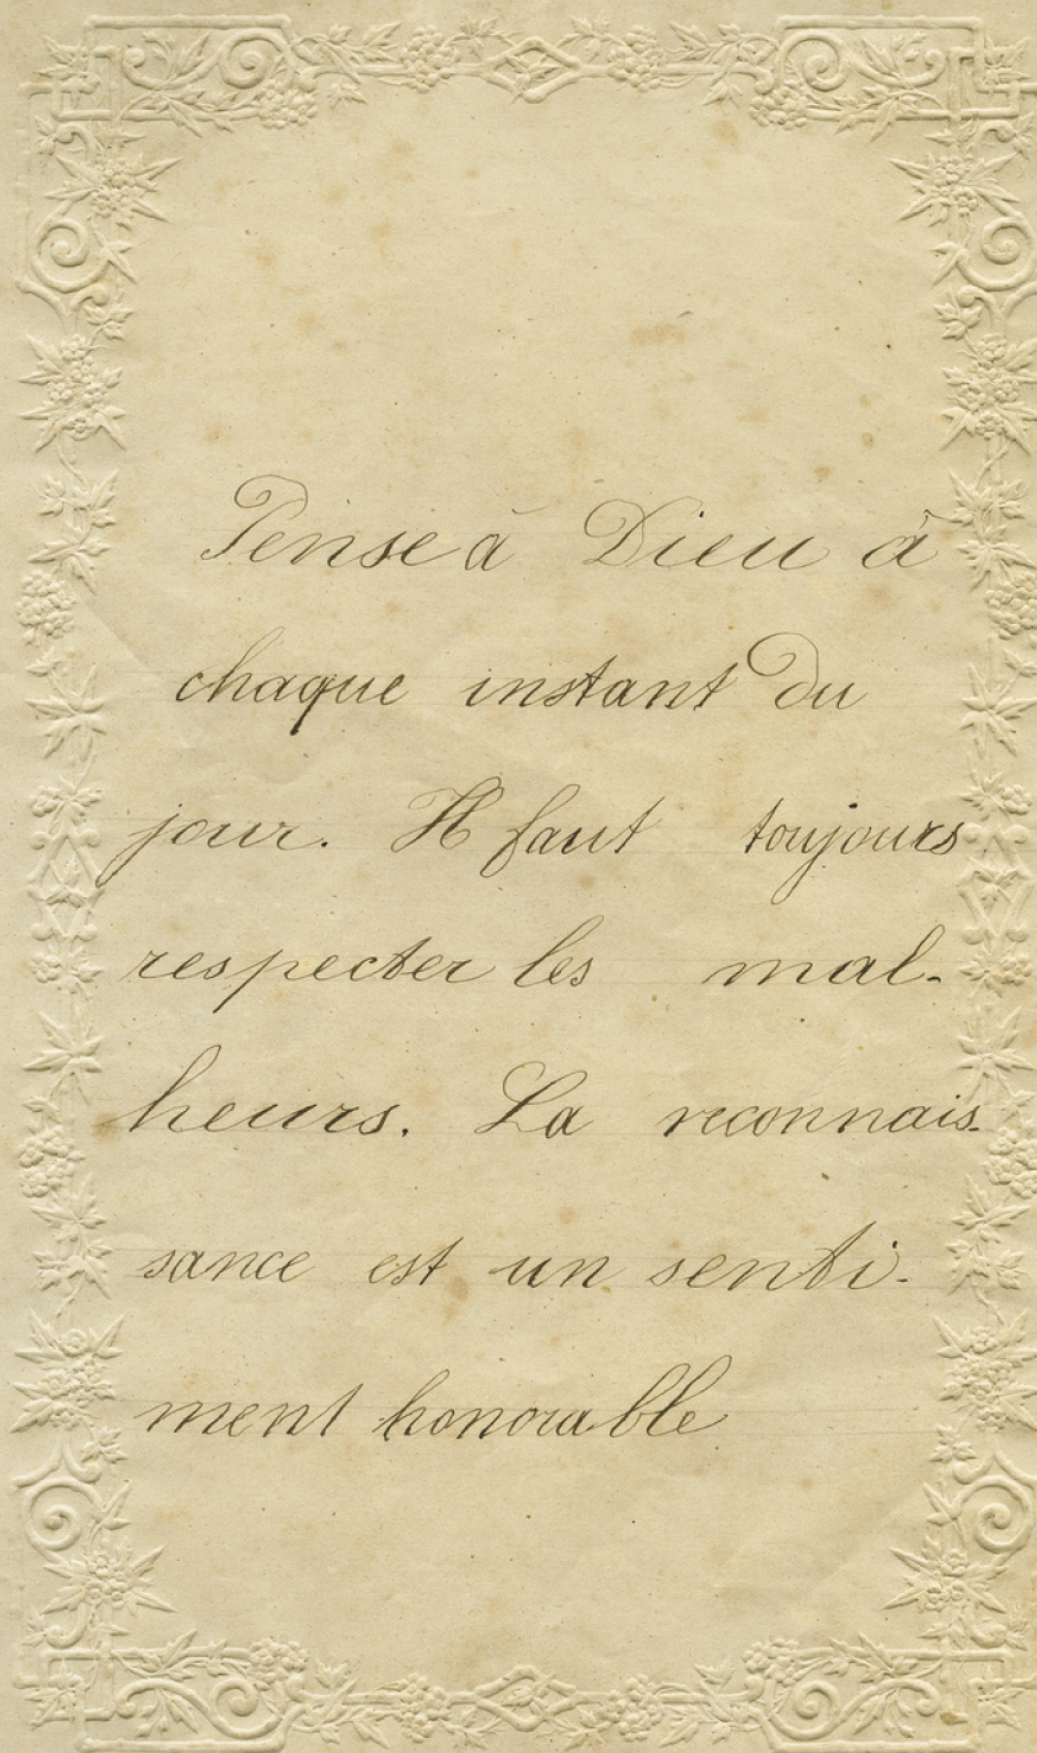 Pense à Dieu à
chaque instant du
jour. Il faut toujours
respecter les mal-
heurs. La reconnais-
sance est un senti-
ment honorable